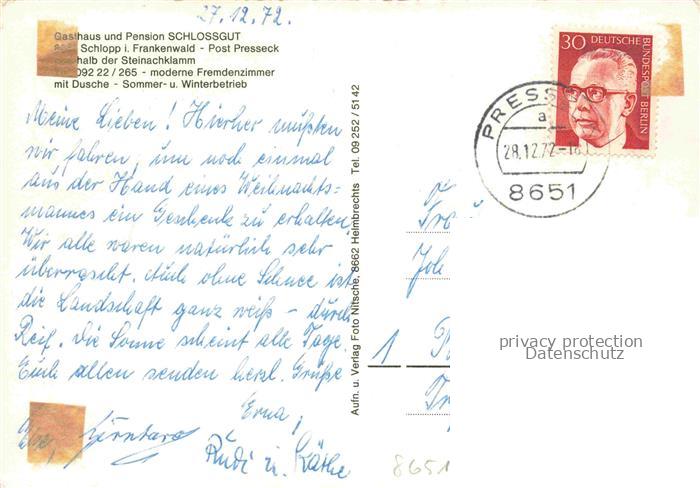 27.12.72.
Gasthaus und Pension SCHLOSSGUT
Schlopp i. Frankenwald - Post Presseck
der Steinachklamm
092 22 / 265 - moderne Fremdenzimmer
mit Dusche - Sommer- u. Winterbetrieb
Meine Lieben! Hierher mußten
wir fahren, um noch einmal
aus der Hand eines Weihnachts=
mannes ein Geschenk zu erhalten.
Wir alle waren natürlich sehr
überrascht. Auch ohne Schnee ist
die Landschaft ganz weiß - durch
Reif. Die Sonne scheint alle Tage.
Euch allen senden herzl. Grüße
Erna,
Rudi u. Käthe
Aufn. u. Verlag Foto Nitsche, 8662 Helmbrechts Tel. 09 252 / 51 42
30 DEUTSCHE BUNDESPOST BERLIN
PRESS
a
28.12.72-18
8651
1
privacy protection
Datenschutz
8651